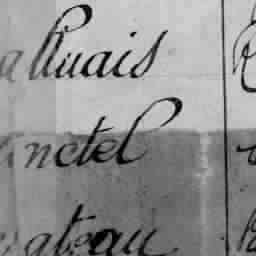 alluais R
anctel
ateau B